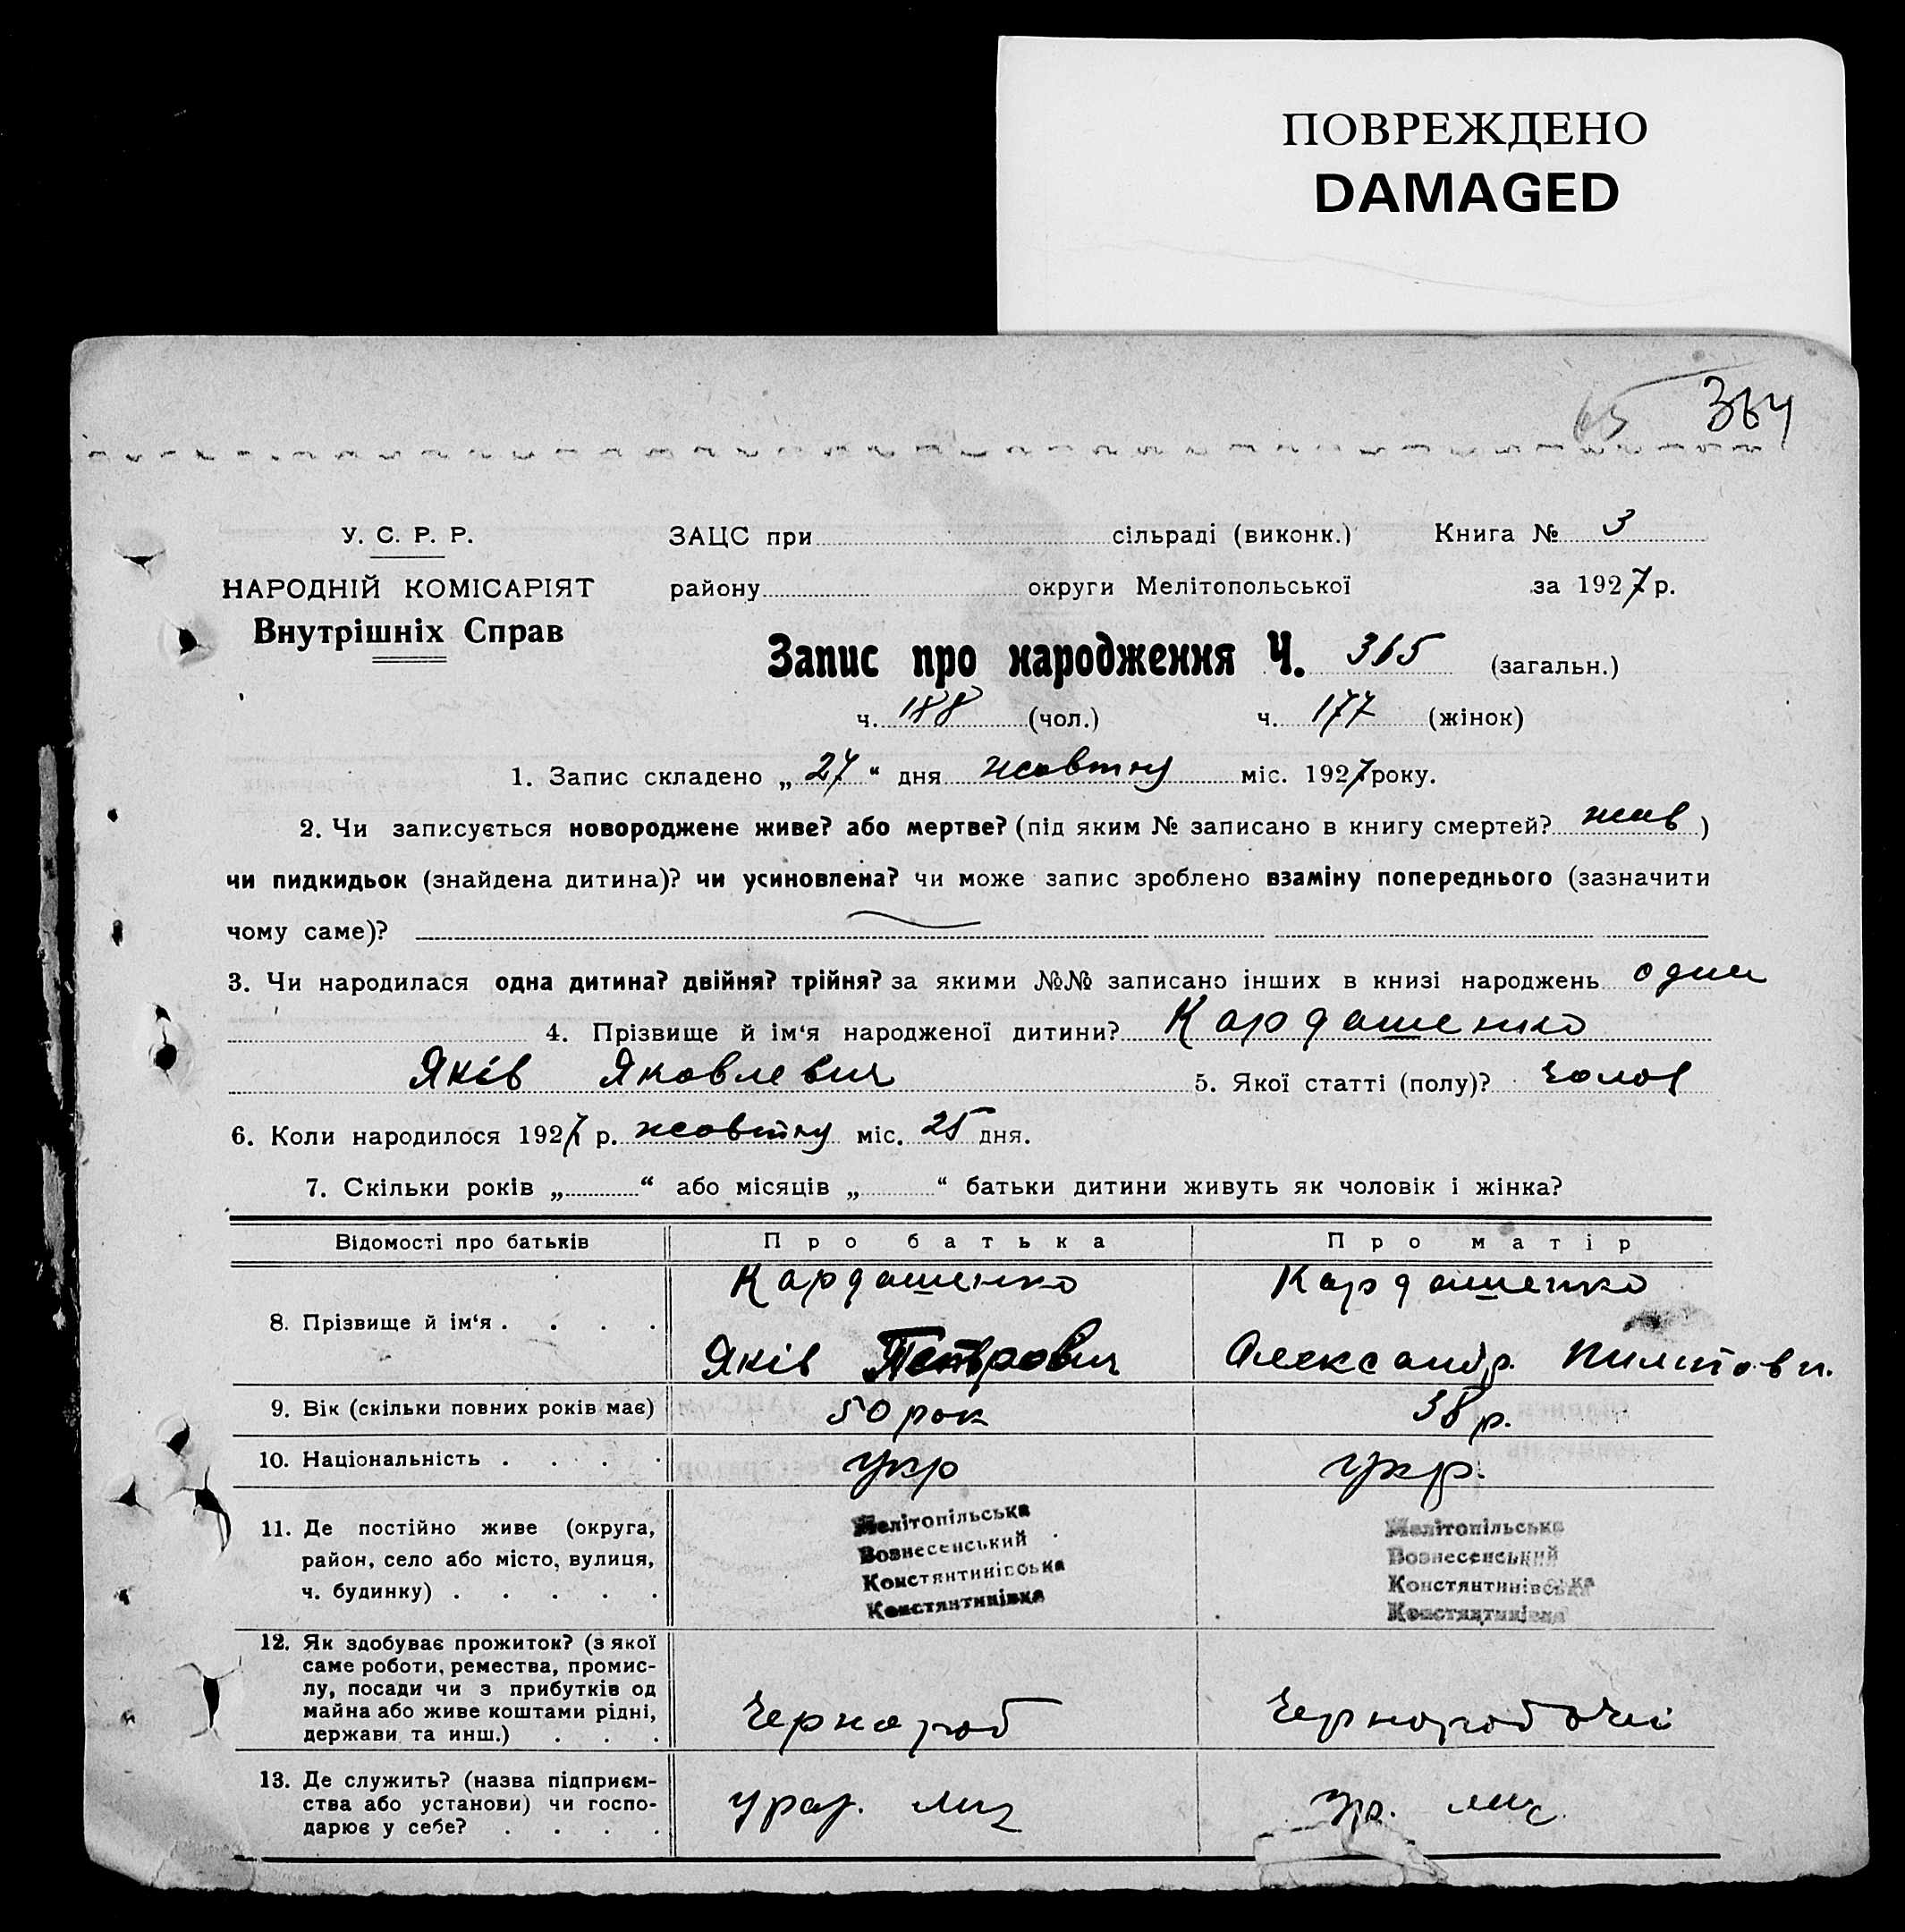 ПОВРЕЖДЕНО
DAMAGED
65 364
У. С. Р. Р.
ЗАЦС при сільраді (виконк.) Книга № 3
НАРОДНІЙ КОМІСАРІЯТ
району округи Мелітопольської за 1927 р.
Внутрішніх Справ
Запис про народження Ч. 365 (загальн.)
ч. 188 (чол.) ч. 177 (жінок)
1. Запис складено „ 27 “ дня жовтну міс. 1927 року.
2. Чи записується новороджене живе? або мертве? (під яким № записано в книгу смертей? жив )
чи пидкидьок (знайдена дитина)? чи усиновлена? чи може запис зроблено взаміну попереднього (зазначити
чому саме)?
3. Чи народилася одна дитина? двійня? трійня? за якими №№ записано інших в книзі народжень
4. Прізвище й ім‘я народженої дитини? Кардашенко
Яків Яковлевич 5. Якої статті (полу)? чолов
6. Коли народилося 1927 р. жовтну міс. 25 дня.
7. Скільки років „ “ або місяців „ “ батьки дитини живуть як чоловік і жінка?
Відомості про батьків Про батька Про матір
Кардашенко Кардашенко
8. Прізвище й ім‘я . . . .
Яків Петрович Александр.
9. Вік (скільки повних років має) 50 рок 38 р.
10. Національність . . . . укр укр.
11. Де постійно живе (округа,
район, село або місто, вулиця,
ч. будинку) . . . . .
Мелітопільська
Вознесенський
Констянтинівська
Констянтинівка
Мелітопільська
Вознесенський
Констянтинівська
Констянтинівка
12. Як здобуває прожиток? (з якої
саме роботи, ремества, промис-
лу, посади чи з прибутків од
майна або живе коштами рідні,
держави та инш.) . . .
Чернороб Чорноробочі
13. Де служить? (назва підприєм-
ства або установи) чи госпо-
дарює у себе? . . . .